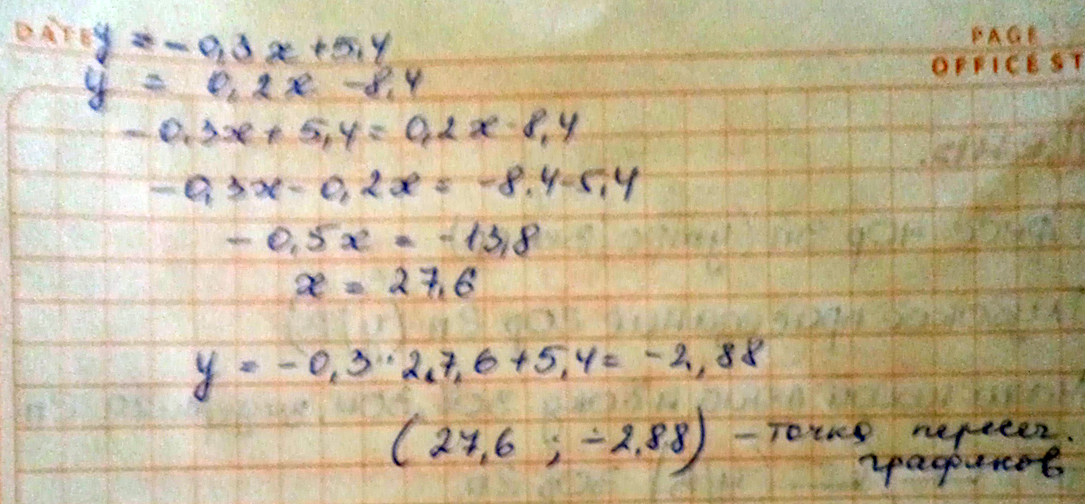 DATE
PAGE
OFFICE ST
y = -0,3x+5,4
y = 0,2x -8,4
-0,3x+5,4=0,2x-8,4
-0,3x-0,2x= -8,4-5,4
-0,5x = -13,8
x = 27,6
y = -0,3·27,6+5,4= -2,88
(27,6 ; -2,88) - точка пересеч.
графиков